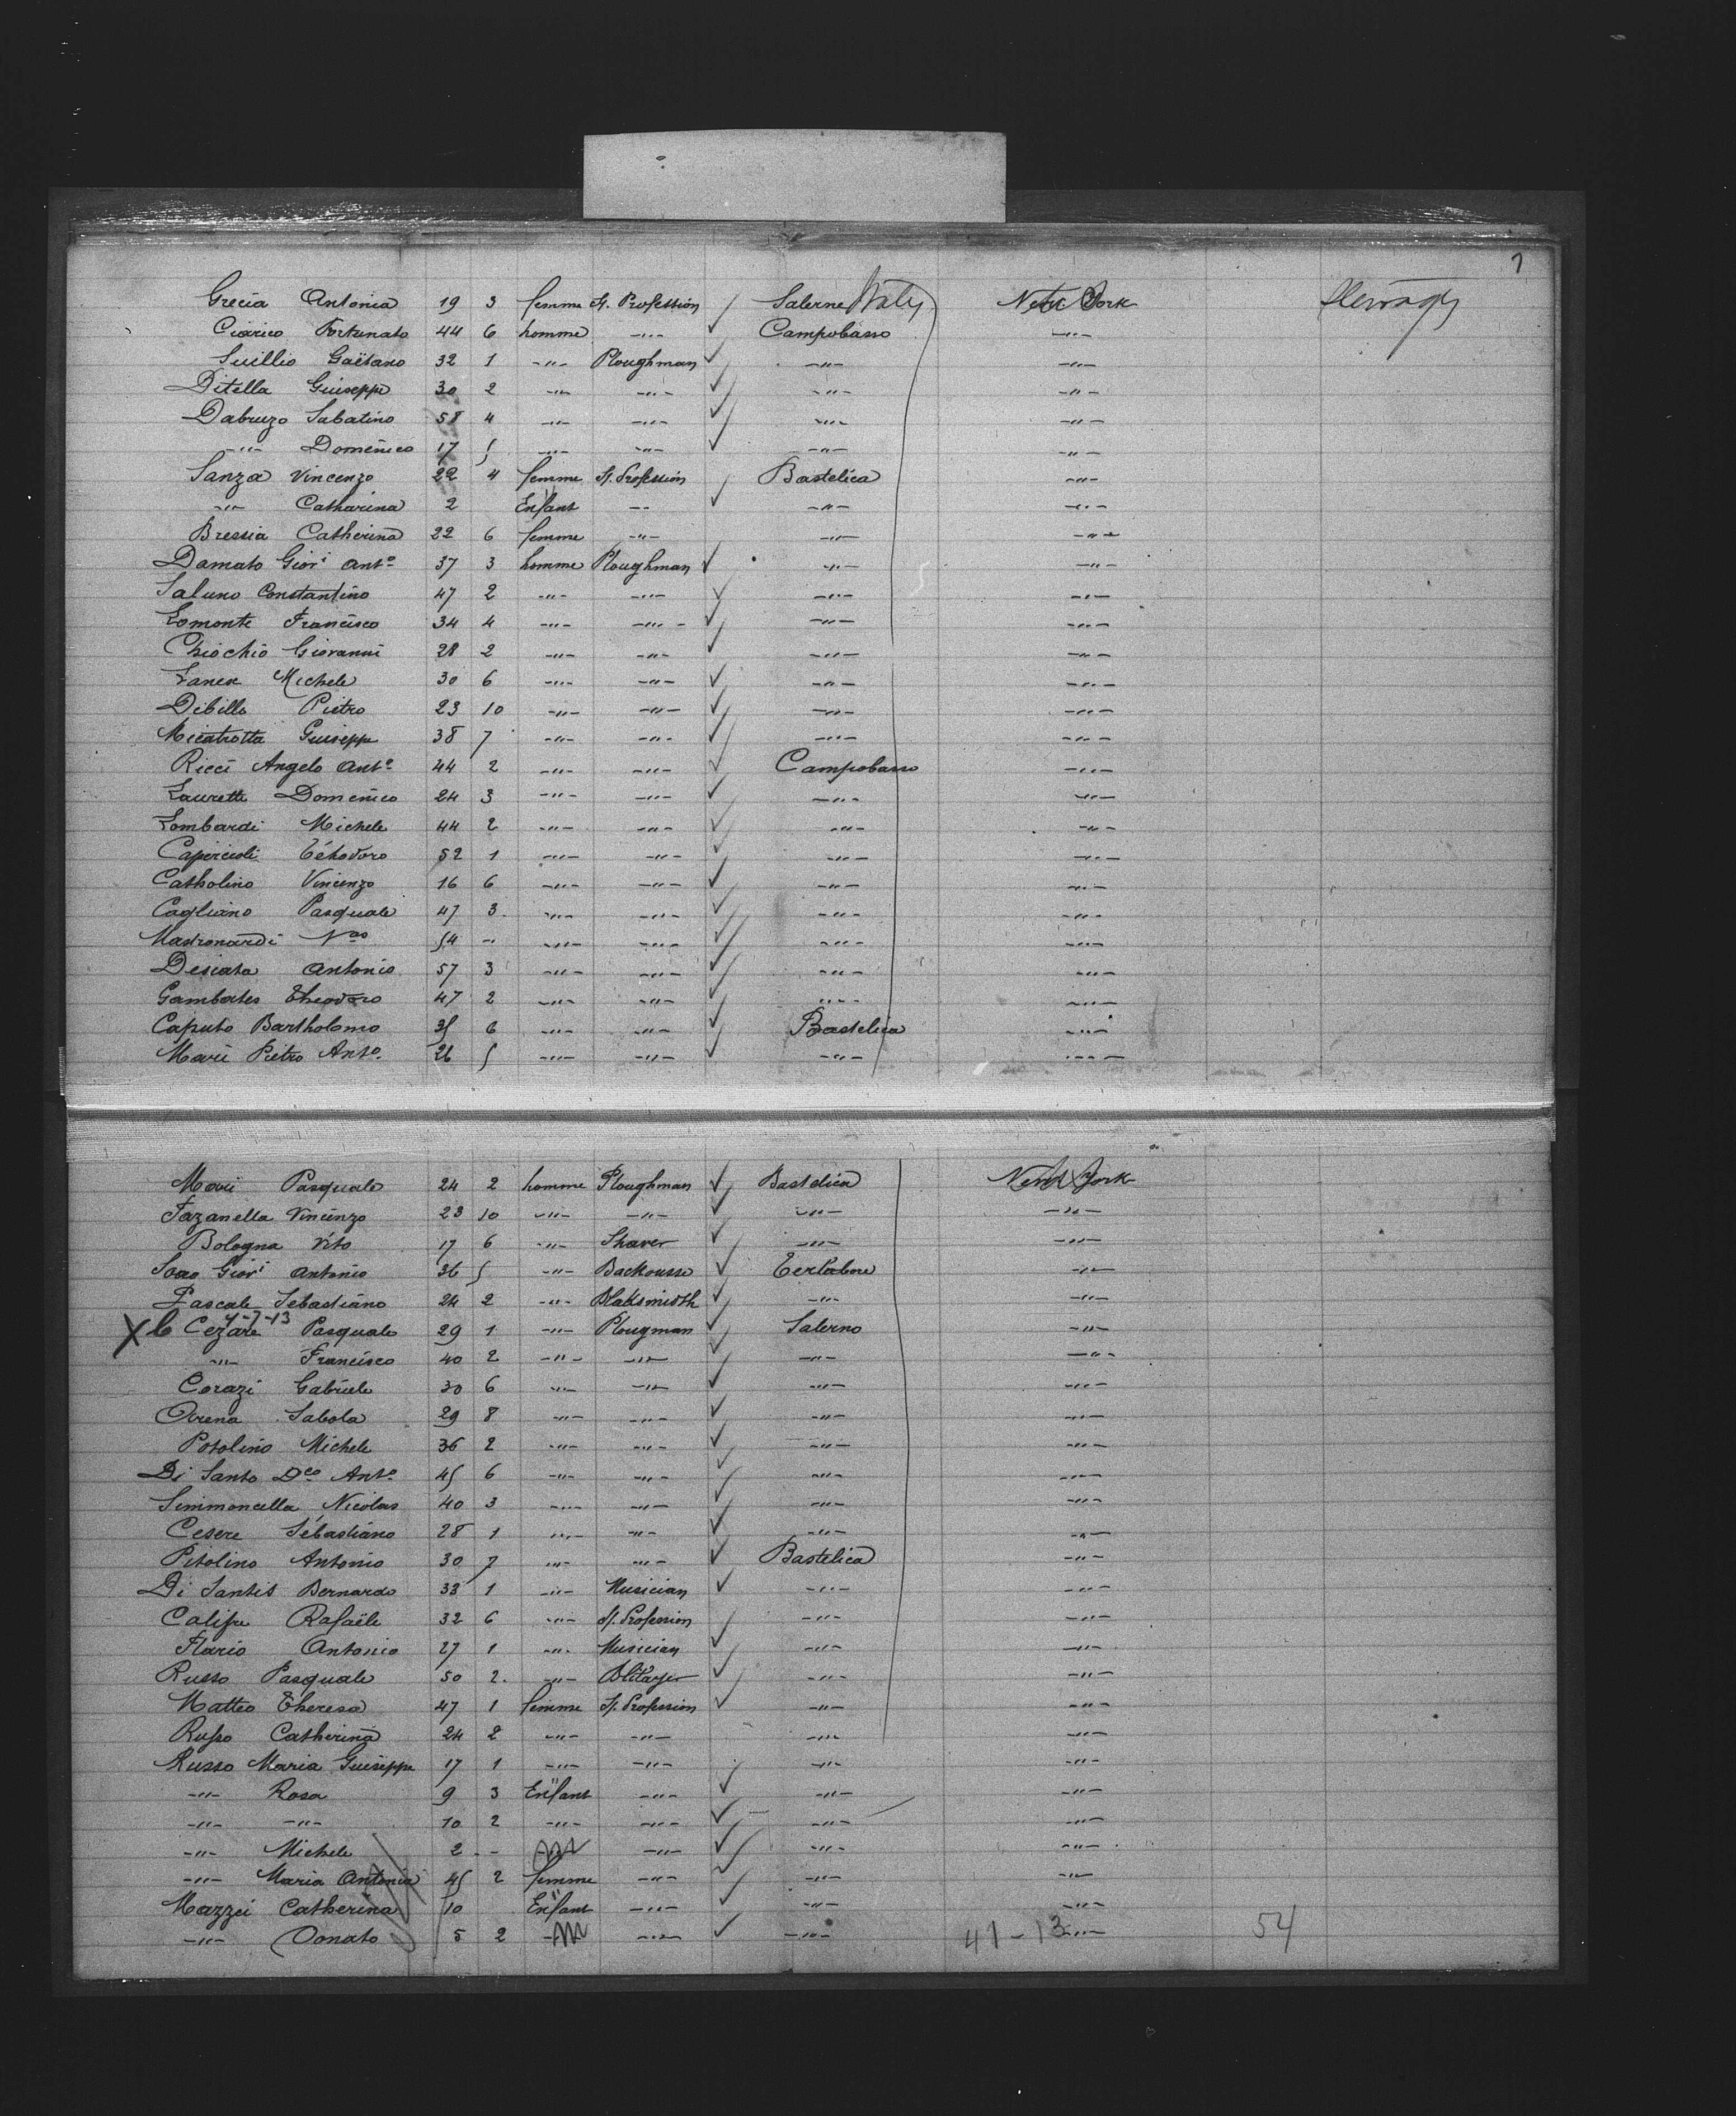 7
Grecia Antonia 19 3 femme S. Profession ✓ Salerne Italy New York Steerage
Ciarico Fortunato 44 6 homme -"- ✓ Campobasso -"-
Suillio Gaëtano 32 1 -"- Ploughman ✓ -"- -"-
Ditella Giuseppe 30 2 -"- -"- ✓ -"- -"-
Dabruzo Sabatino 58 4 -"- -"- ✓ -"- -"-
-"- Domenico 17 5 -"- -"- ✓ -"- -"-
Sanza Vincenzo 22 4 femme S. Profession Bastelica -"-
-"- Catharina 2 Enfant -"- ✓ -"- -"-
Bressia Catherina 22 6 femme -"- -"- -"-
Damato Giov.i Ant.o 37 3 homme Ploughman ✓ -"- -"-
Saluno Constantino 47 2 -"- -"- ✓ -"- -"-
Lomonte Francisco 34 4 -"- -"- ✓ -"- -"-
Chiochio Giovanni 28 2 -"- -"- ✓ -"- -"-
Michele 30 6 -"- -"- ✓ -"- -"-
Dibillo Pietro 23 10 -"- -"- ✓ -"- -"-
Micatrotta Guiseppe 38 7 -"- -"- ✓ -"- -"-
Ricci Angelo Ant.o 44 2 -"- -"- ✓ Campobasso -"-
Laurette Domenico 24 3 -"- -"- ✓ -"- -"-
Lombardi Michele 44 2 -"- -"- ✓ -"- -"-
Capercioli Téhodoro 52 1 -"- -"- ✓ -"- -"-
Catholino Vincenzo 16 6 -"- -"- ✓ -"- -"-
Cagliano Pasquale 47 3 -"- -"- ✓ -"- -"-
Mastronardi N.as 54 -"- -"- -"- ✓ -"- -"-
Desiata Antonio 57 3 -"- -"- ✓ -"- -"-
Gambates Theodoro 47 2 -"- -"- ✓ -"- -"-
Caputo Bartholomo 35 6 -"- -"- ✓ Bastelica -"-
Marii Pietro Ant.o 26 5 -"- -"- ✓ -"- -"-
Marii Pasquale 24 2 homme Ploughman ✓ Bastelica New York
Fazanella Vincenzo 23 10 -"- -"- ✓ -"- -"-
Bologna Vito 17 6 -"- Shaver ✓ -"- -"-
Giov.i Antonio 36 5 -"- Backousse ✓ Terlabore -"-
Pascale Sebastiano 24 2 -"- Blaksmisth ✓ -"- -"-
X 4-7-13
Cezare Pasquale 29 1 -"- Plougman ✓ Salerno -"-
-"- Francisco 40 2 -"- -"- ✓ -"- -"-
Corazi Gabriele 30 6 -"- -"- ✓ -"- -"-
Orena Sabola 29 8 -"- -"- ✓ -"- -"-
Potolino Michele 36 2 -"- -"- ✓ -"- -"-
Di Santo D.co Ant.o 45 6 -"- -"- ✓ -"- -"-
Simmoncella Nicolas 40 3 -"- -"- ✓ -"- -"-
Cesere Sébastiano 28 1 -"- -"- ✓ -"- -"-
Pitolino Antonio 30 7 -"- -"- ✓ Bastelica -"-
Di Santis Bernardo 33 1 -"- Musician ✓ -"- -"-
Califre Rafaële 32 6 -"- S. Profession ✓ -"- -"-
Flario Antonio 27 1 -"- Musician ✓ -"- -"-
Russo Pasquale 50 2 -"- ✓ -"- -"-
Matteo Theresa 47 1 femme S. Profession ✓ -"- -"-
Russo Catherina 24 2 -"- -"- -"- -"-
Russo Maria Guiseppe 17 1 -"- -"- -"- -"-
-"- Rosa 9 3 Enfant -"- ✓ -"- -"-
-"- -"- 10 2 -"- -"- ✓ -"- -"-
-"- Michele 2 - -"- -"- ✓ -"- -"-
-"- Maria Antonia 45 2 femme -"- ✓ -"- -"-
Mazzei Catherina 10 Enfant -"- ✓ -"- -"-
-"- Donato 5 2 -"- -"- ✓ -"- 41-13 -"- 54